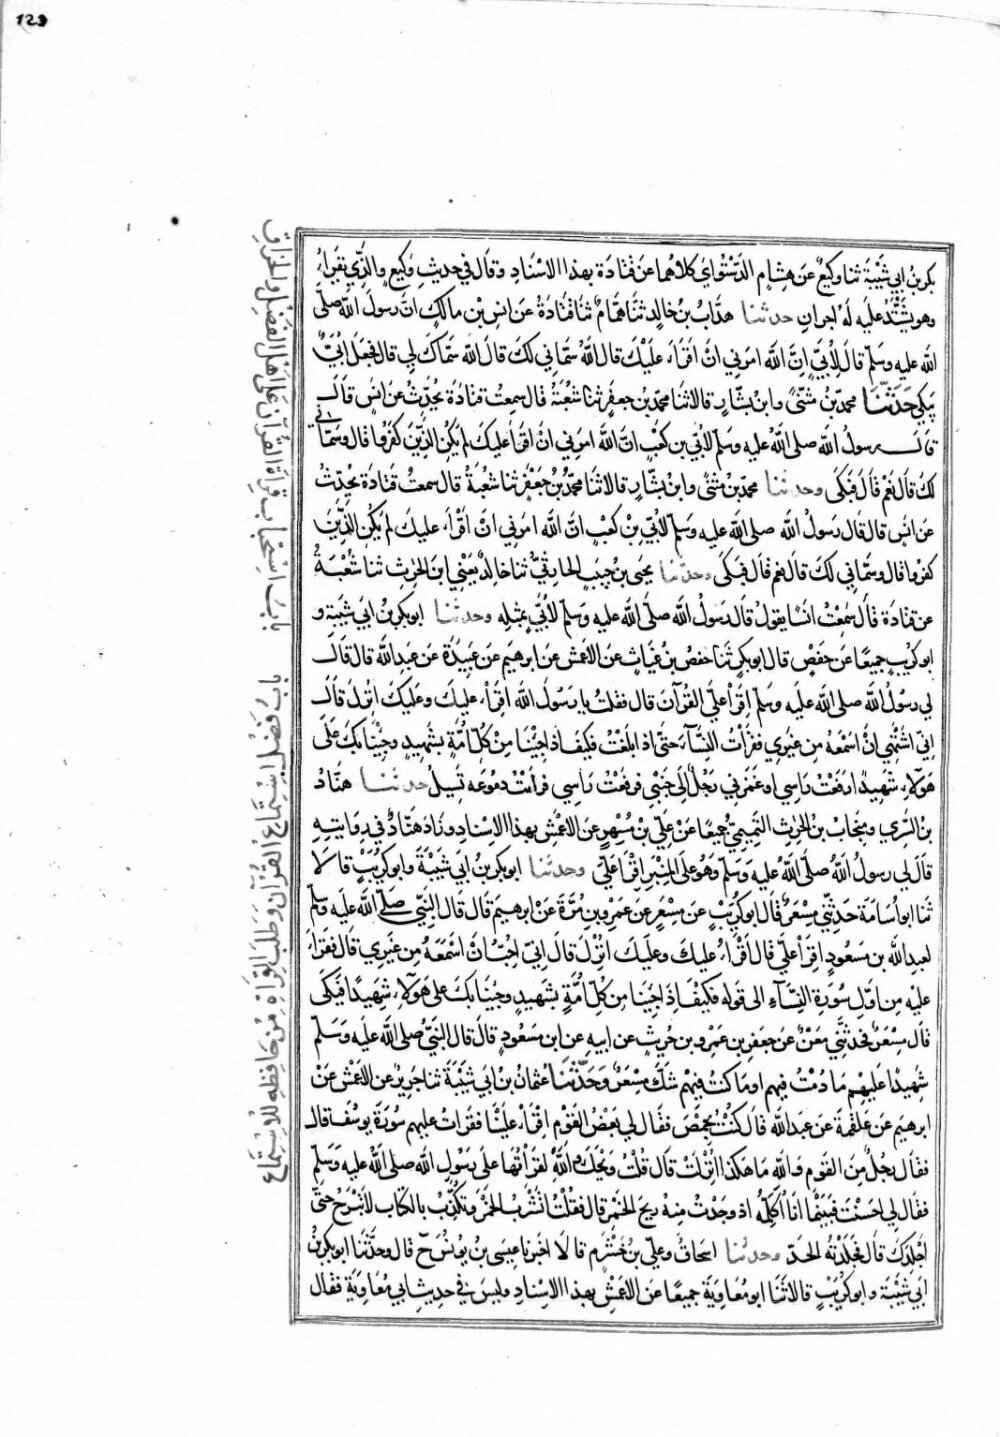 123
بكر بن ابي شيبة ثنا وكيع عن هشام الدستواي كلاهما عن قتادة بهذا الاسناد وقال في حديث وكيع والذي يقراء
وهو يشتد عليه له اجران حدثنا هداب بن خالد ثنا همام ثنا قتادة عن انس بن مالك ان رسول الله صلى
الله عليه وسلم قال لابي ان الله امرني ان اقراء عليك قال الله سماني لك قال الله سماك لي قال فجعل ابي
يبكي حدثنا محمد بن مثنى وابن بشار قالا ثنا محمد بن جعفر ثنا شعبة قال سمعت قتادة يحدث عن انس قال
قال رسول الله صلى الله عليه وسلم لابي بن كعب ان الله امرني ان اقرا عليك لم يكن الذين كفروا قال وسماني
لك قال نعم قال فبكى وحدثنا محمد بن مثنى وابن بشار قالا ثنا محمد بن جعفر ثنا شعبة قال سمعت قتادة يحدث
عن انس قال قال رسول الله صلى الله عليه وسلم لابي بن كعب ان الله امرني ان اقراء عليك لم يكن الذين
كفروا قال وسماني لك قال نعم قال فبكى وحدثنا يحيى بن حبيب الحارثي ثنا خالد يعني ابن الحرث ثنا شعبة
عن قتادة قال سمعت انسا يقول قال رسول الله صلى الله عليه وسلم لابي بمثله وحدثنا ابو بكر بن ابي شيبة و
ابو كريب جميعا عن حفص قال ابو بكر ثنا حفص بن غياث عن الاعمش عن ابرهيم عن عبيدة عن عبد الله قال قال
لي رسول الله صلى الله عليه وسلم اقرا علي القرآن قال فقلت يا رسول الله اقراء عليك وعليك انزل قال
اني اشتهي ان اسمعه من غيري فقرأت النساء حتى اذا بلغت فكيف اذا جينا من كل امة بشهيد وجينا بك على
هولاء شهيدا رفعت راسي او غمزني رجل الى جنبي فرفعت راسي فرأيت دموعه تسيل حدثنا هناد
بن السري ومنجاب بن الحرث التميمي جميعا عن علي بن مسهر عن الاعمش بهذا الاسناد وزاد هناد في روايته
قال لي رسول الله صلى الله عليه وسلم وهو على المنبر اقرا علي وحدثنا ابو بكر بن ابي شيبة وابو كريب قالا
ثنا ابو أسامة حدثني مسعر قال ابو كريب عن مسعر عن عمرو بن مرة عن ابرهيم قال قال النبي صلى الله عليه وسلم
لعبد الله بن مسعود اقرا علي قال اقراء عليك وعليك انزل قال اني احب ان اسمعه من غيري قال فقراء
عليه من اول سورة النساء الى قوله فكيف اذا جينا من كل امة بشهيد وجينا بك على هولاء شهيدا فبكى
قال مسعر فحدثني معن عن جعفر بن عمرو بن حريث عن ابيه عن ابن مسعود قال قال النبي صلى الله عليه وسلم
شهيدا عليهم ما دمت فيهم او ما كنت فيهم شك مسعر وحدثنا عثمان بن ابي شيبة ثنا جرير عن الاعمش عن
ابرهيم عن علقمة عن عبد الله قال كنت بحمص فقال لي بعض القوم اقراء علينا فقرات عليهم سورة يوسف قال
فقال رجل من القوم والله ما هكذا انزلت قال قلت ويحك والله لقد قراتها على رسول الله صلى الله عليه وسلم
فقال لي احسنت فبينما انا اكلمه اذ وجدت منه ريح الخمر قال فقلت اتشرب الخمر وتكذب بالكتاب لا تبرح حتى
اجلدك قال فجلدته الحد وحدثنا اسحاق وعلي بن خشرم قالا اخبرنا عيسى بن يونس ح قال وحدثنا ابو بكر بن
ابي شيبة وابو كريب قالا ثنا ابو معاوية جميعا عن الاعمش بهذا الاسناد وليس في حديث ابي معاوية فقال
باب استحباب قراة القرآن على اهل الفضل والحذاق
باب فضل استماع القرآن وطلب القراة من حافظه للاستماع